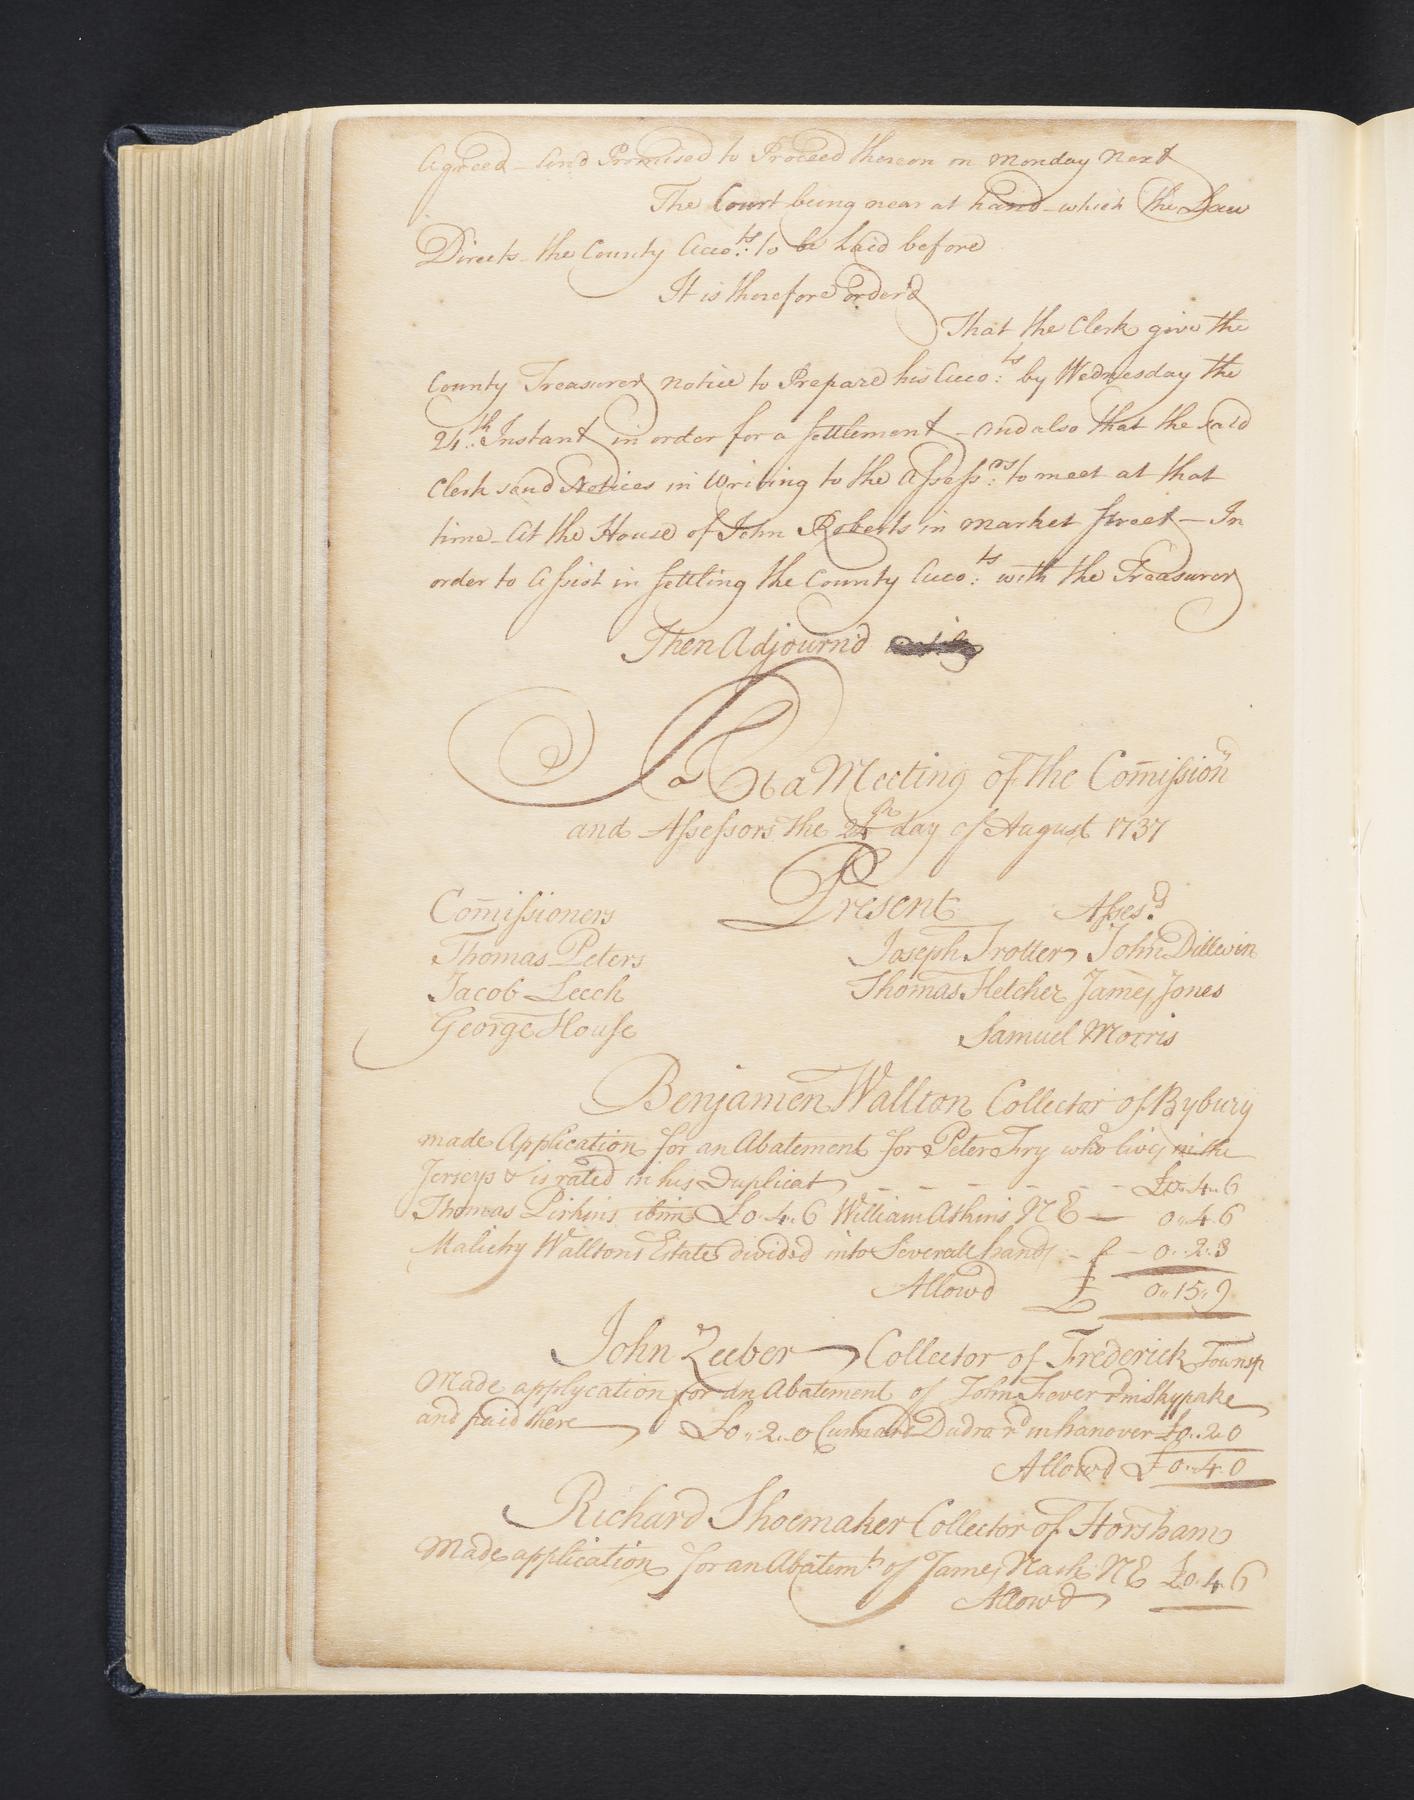 Agreed - And Promised to Proceed thereon on Monday Next
The Court being near at hand - which the Law
Directs - the County Acco:ts to be Laid before
It is therefore Order'd
That the Clerk give the
County Treasurer notice to Prepare his Acco:ts by Wednesday the
24:th Instant in order for a Settlement - And also that the said
Clerk send Notices in Writing to the Assess:rs to meet at that
time - At the House of John Roberts in Market Street - In
order to Assist in Settling the County Acco:ts with the Treasurer
Then Adjourn'd
At a Meeting of the Com̄ission:rs
and Assessors the 24th day of August 1737
Present
Com̄issioners
Asses:d
Thomas Peters
Joseph Trotter John Dillwin
Jacob Leech
Thomas Fletcher James Jones
George House
Samuel Morris
Benjamen Wallton Collector of Bybury
made Application for an Abatement for Peter Fry who lives in the
Jerseys & is rated in his Duplicat - - - - - - £0..4..6
Thomas Pirkins £0..4..6 William Atkins N E - 0..4..6
Malichy Walltons Estate divided into Severall hands - £ - 0..2..3
Allowd £ 0..15..9
John Zeeber Collector of Frederick Townsp
Made applycation for An Abatement of John Fever rd in Skypake
and paid there £0..2..0 Dudra rd in hanover £0..2..0
Allowd £0..4..0
Richard Shoemaker Collector of Horsham
Made application for an Abatemt of James Nash N E £0..4..6
Allowd